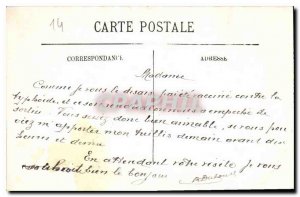 14
CARTE POSTALE
CORRESPONDANCE
ADRESSE
Madame
Comme je vous le disais j'ai été vaccine contre la
typhoïde et ce soir m'empeche de
sortir donc bien aimable, si vous pou
viez m'apporter mon treillis demain avant dix
heures et demie
En attendant votre visite je vous
souhait bien le bonjour